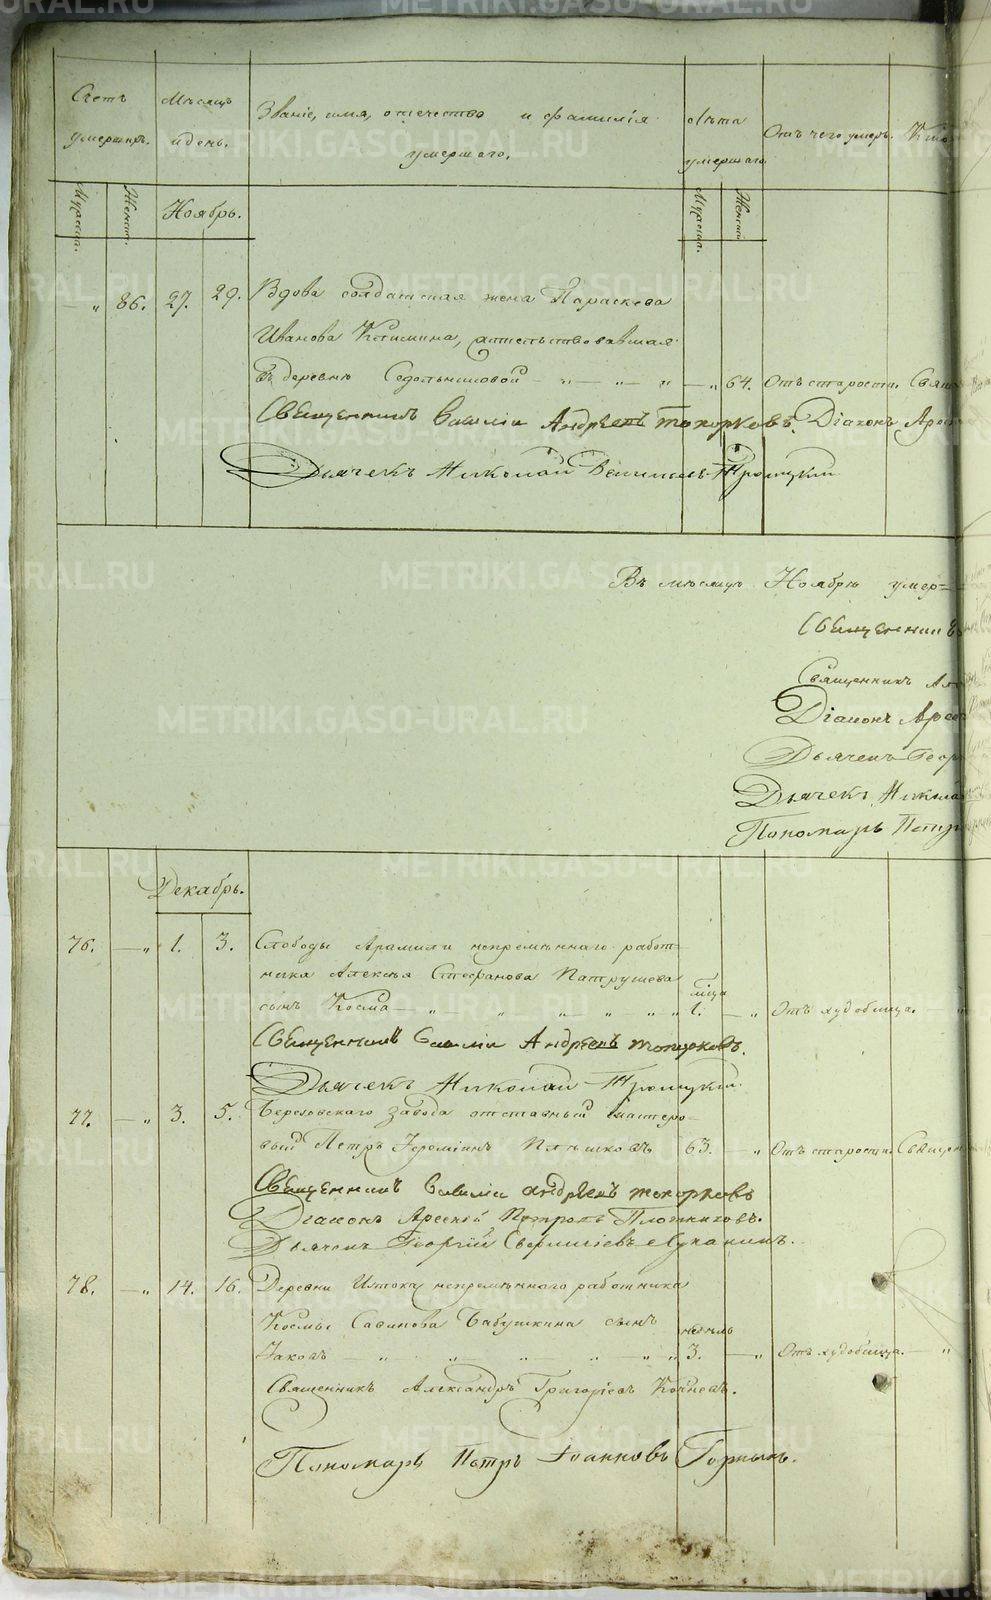 METRIKI.GASO-URAL.RU
Счетъ умершихъ. Мѣсяцъ и день. Званіе, имя, отечество и фамилія умершаго. Лѣта умершаго. Отъ чего умеръ.
Мужеска. Женска. Ноябрь. Мужеска. Женска
„ 86. 27. 29. Вдова солдатская жена Параскева
Иванова Климина, жительствовавшая
въ деревню „ — „ — „ — „ 64. Отъ старости.
Священникъ Василій Андреевъ Топорковъ. Діаконъ
Дьячекъ Николай Троицкій
Въ мѣсяцѣ Ноябрѣ умер=
Священникъ
Священникъ
Діаконъ
Дьячекъ
Дьячекъ
Пономарь Петръ
Декабрь.
76. — „ 1. 3. Слободы Арамили непремѣннаго работ=
ника Алексѣя Стефанова Патрушева
сынъ Косма — „ — „ „ „ „ мѣсца 1. — „ Отъ худобища.
Священникъ Василій Андреевъ Топорковъ.
Дьячекъ Николай Троицкій.
77. — „ 3. 5. Березовскаго завода отставный мастеро=
вый Петръ Іереміинъ Плѣшковъ 63. — „ Отъ старости.
Священникъ Василій Андреевъ Топорковъ
Діаконъ Арсеній Петровъ Плотниковъ.
Дьячекъ Георгій
78. — „ 14. 16. Деревни Истока непремѣннаго работника
Космы Савинова Бабушкина сынъ
Іаковъ — „ „ „ „ „ недѣль 3. — „ Отъ худобища. — „
Священникъ Александръ Григоріевъ Кочневъ.
Пономарь Петръ Іоанновъ Горныхъ.